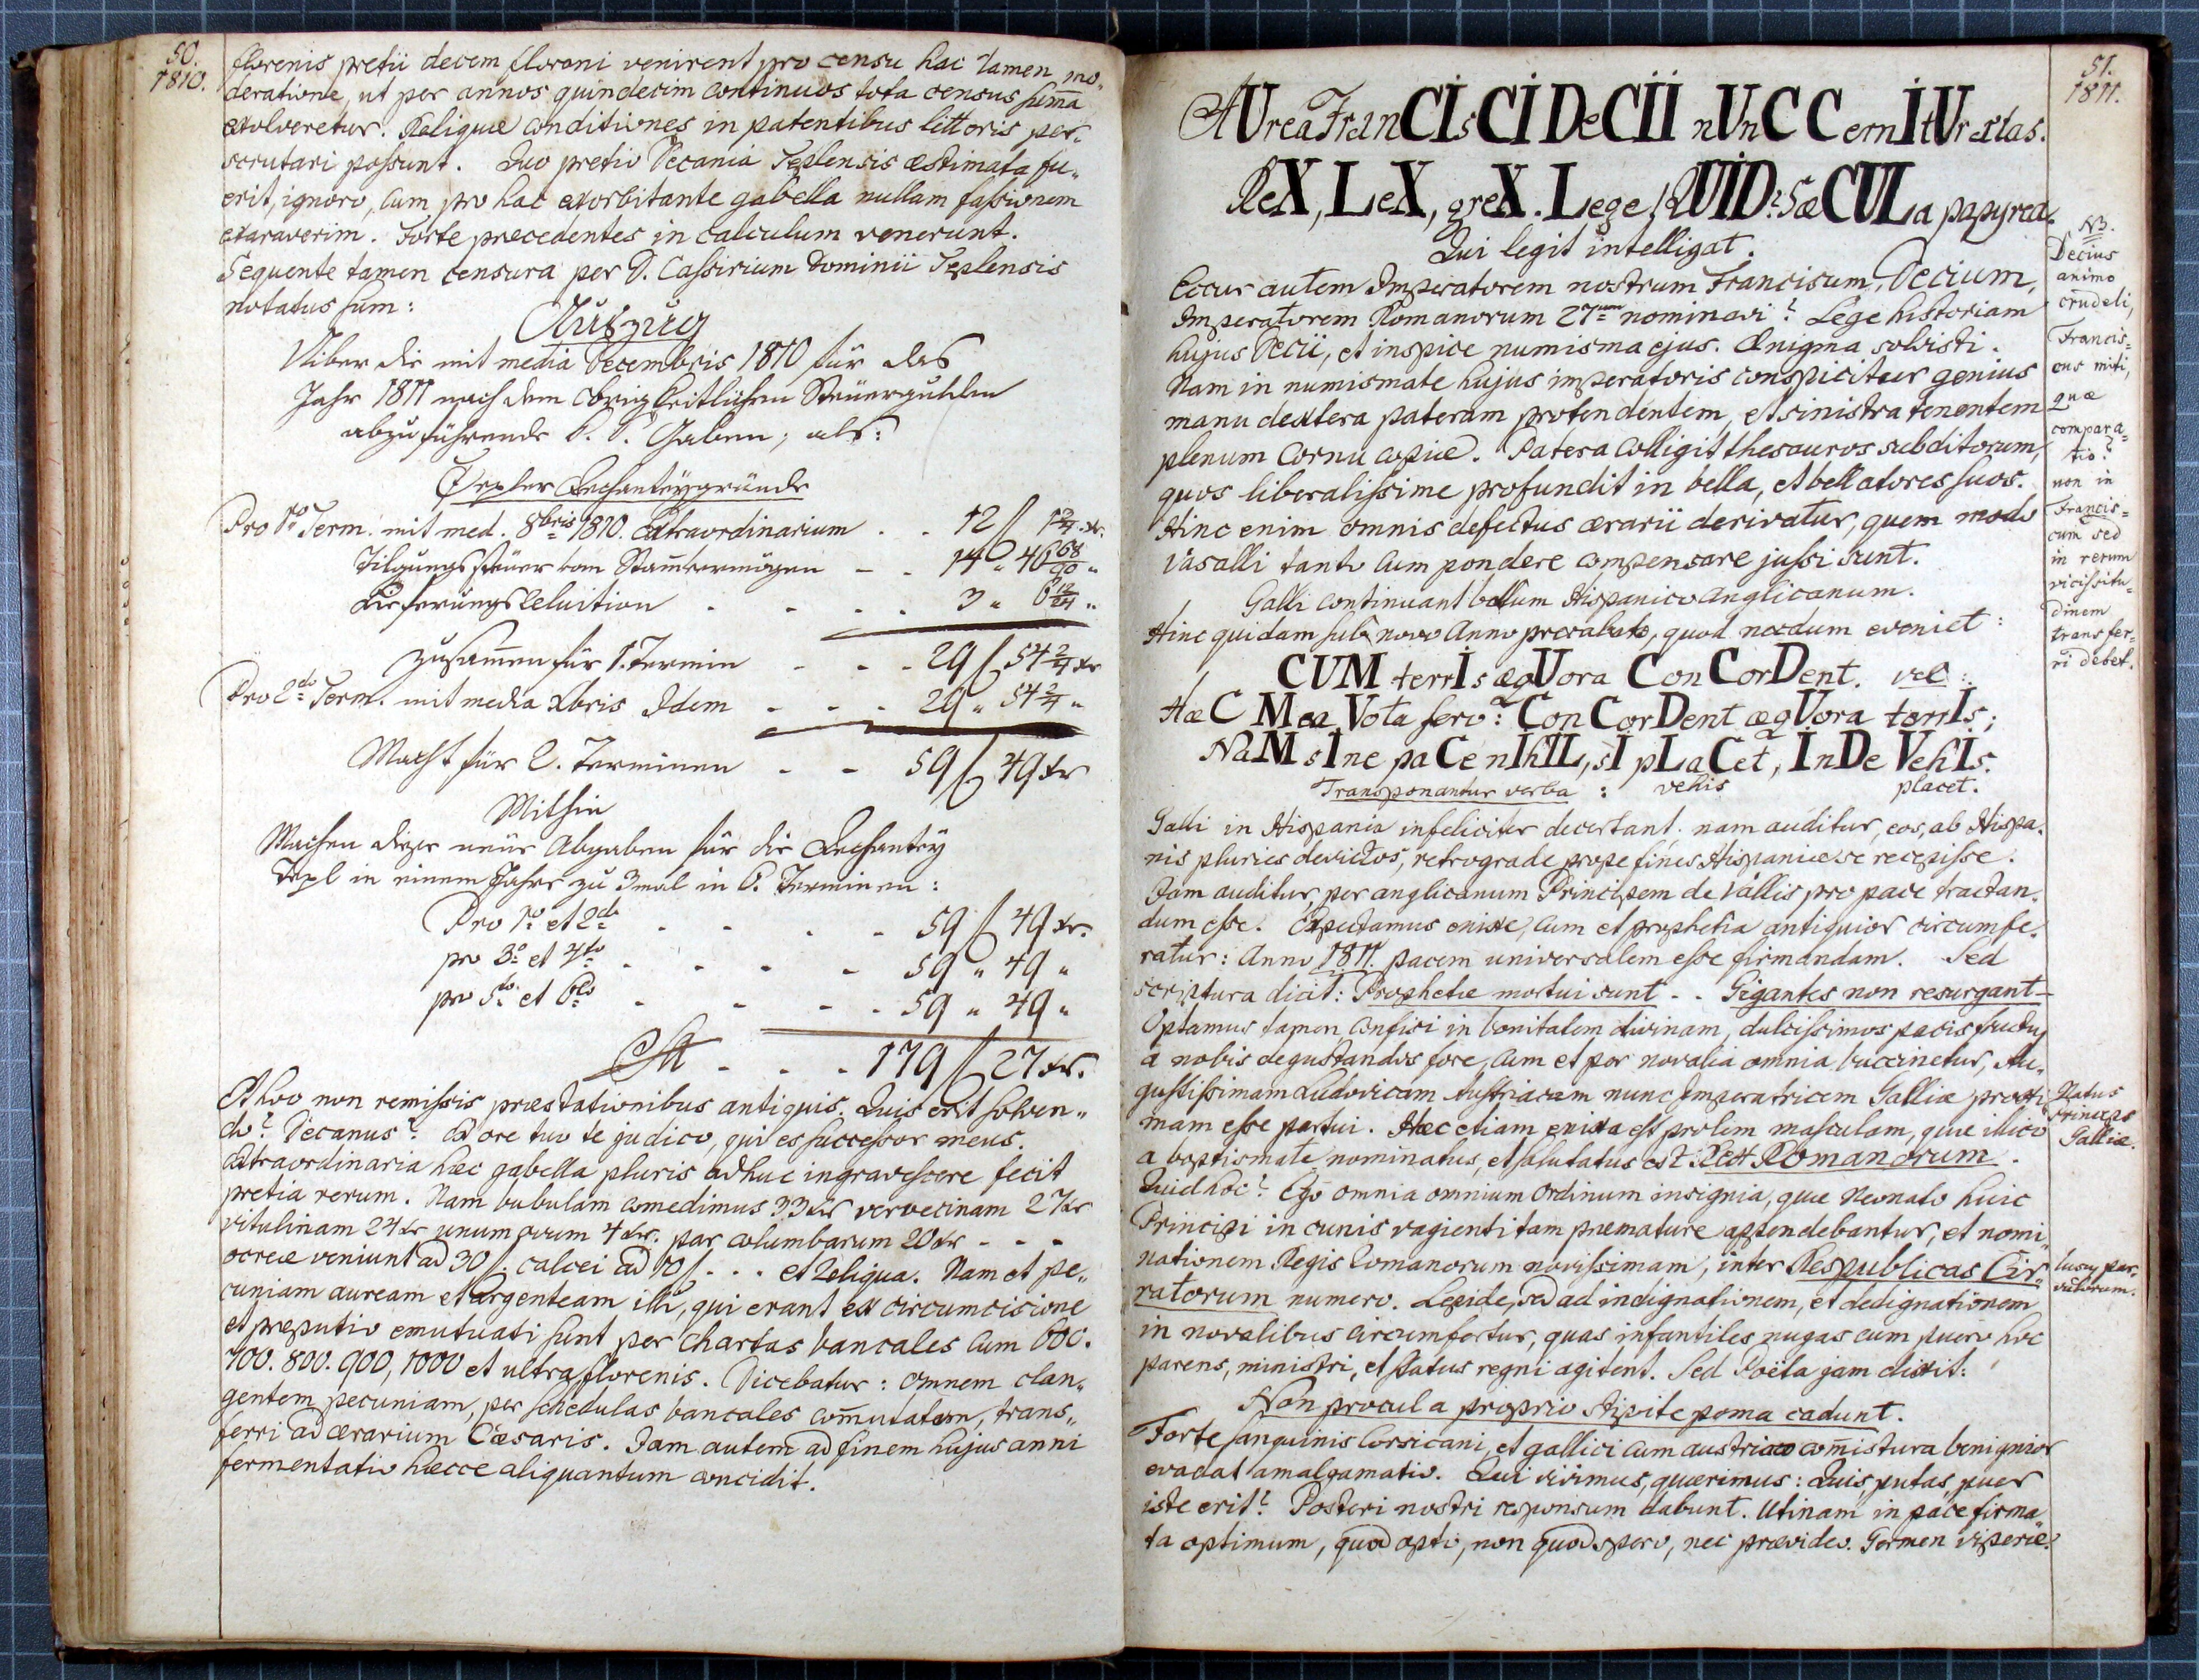 50.
1810.
florenis pretii decem floreni venirent pro censu hac tamen mo„
deratione, ut per annos quindecim continuos tota census sum̄a
exolveretur. Reliquæ conditiones in patentibus litteris per„
scrutari possunt. Quo pretio Decania Teplensis æstimata fu„
erit, ignoro, cum pro hac exorbitante gabella nullam fassionem
exaraverim. Forte præcedentes in calculum venerunt.
Sequente tamen censura per D. Cassirium Dominii Teplensis
notatus sum:
Auszug
Uiber die mit media Decembris 1810 für das
Jahr 1811 nach dem obrigkeitlichen Steuergulden
abzuführende Gaben; als:
Tepler Dechanteygründe
Pro 1º Term. mit med. 8bris 1810. Extraordinarium . . 12 f 1 3/4 xr.
Tilgungssteuer vom Stammvermögen - . 14 „ 46 68/90 „
Lieferungs Reluition . - . . 3 „ 6 12/24 „
zusam̄en für 1. Termin - - . 29 f 54 2/4 xr
Pro 2do Term. mit media Xbris Idem - - - 29 „ 54 2/4 „
Macht für 2. Terminen - - 59 f 49 xr
Mithin
Machen diese neue Abgaben für die Dechantey
Tepl in einem Jahre zu 3mal in 6. Terminen:
Pro 1º et 2do - - - - 59 f 49 xr.
pro 3º et 4to - - - - 59 „ 49 „
pro 5to et 6to - - - - 59 „ 49 „
- . . 179 f 27 xr.
Et hoc non remissis præstationibus antiquis. Quis erit solven„
do? Decanus? Ex ore tuo te judico, qui es successor meus.
Extraordinaria hæc gabella pluris adhuc ingravescere fecit
pretia rerum. Nam bubulam comedimus 33 xr vervecinam 27 xr
vitulinam 24 xr unum ovum 4 xr. par columbarum 20 xr - - -
ocreæ veniunt ad 30 f. calcei ad 10 f . . . et reliqua. Nam et pe„
cuniam auream et argenteam illi, qui erant ex circumcisione
et præputio emutuati sunt per chartas bancales cum 600.
700. 800. 900, 1000 et ultra florenis. Dicebatur: omnem clan„
gentem pecuniam, per schedulas bancales com̄utatam, trans„
ferri ad ærarium Cæsaris. Jam autem ad finem hujus anni
fermentatio hæcce aliquantum concidit.
51.
1811.
AUrea FranCIsCI DeCII nUnC CernItUr ætas.
ReX, LeX, greX. Lege! QUID? SæCULa papyrea.
Qui legit intelligat.
Eccur autem Imperatorem nostrum Franciscum, Decium,
Imperatorem Romanorum 27um nominavi? Lege historiam
hujus Decii, et inspice numisma ejus. Ænigma solvisti.
Nam in numismate hujus imperatoris conspicitur genius
manu dextera pateram protendentem, et sinistra tenentem
plenum cornu copiæ. Patera colligit thesauros subditorum,
quos liberalissime profundit in bella, et bellatores suos.
Hinc enim omnis defectus ærarii derivatur, quem modo
vasalli tanto cum pondere compensare jussi sunt.
Galli continuant bellum Hispanico anglicanum.
Hinc quidam sub novo Anno precabatr, quod necdum evenit:
CUM terrIs æqUora ConCorDent. vel:
HæC Mea Vota fero: ConCorDent æqUora terrIs;
NaM sIne paCe nIhIL, sI pLaCet, InDe VehIs.
Transponantur verba : vehis placet.
Galli in Hispania infeliciter decertant. nam auditur, eos, ab Hispa„
nis pluries devictos, retrograde prope fines Hispaniæ se recepisse.
Jam auditur, per anglicanum Principem de Vallis pro pace tractan„
dum esse. Expectamus enixe, cum et prophetia antiquior circumfe„
ratur: Anno 1811. pacem universalem esse firmandam. Sed
scriptura dicit: Prophetæ mortui sunt - - Gigantes non resurgant -
Optamus tamen, confisi in bonitatem divinam, dulcissimos pacis fructus
a nobis degustandos fore, cum et per novalia omnia buccinetur, Au„
gustissimam Ludovicam Austriacam nunc Imperatricem Galliæ proxi„
mam esse partui. Hæc etiam enixa est prolem masculam, quæ illico
a baptismate nominatus, et salutatus est Rex Romanorum.
Quid hoc? Ego omnia omnium Ordinum insignia, quæ Neonato huic
Principi in cunis vagienti tam præmature appendebantur, et nomi„
nationem Regis Romanorum novissimam, inter Respublicas Cir„
ratorum numero. Lepide, sed ad indignationem, et dedignationem
in novalibus circumfertur, quas infantiles nugas cum puero hoc
parens, ministri, et status regni agitent. Sed Poëta jam dixit:
Non procul a proprio stipite poma cadunt.
Forte sanguinis Corsicani, et gallici cum austriaco com̄istura benignior
evadat amalgamatio. Qui vivimus, quærimus: Quis, putas, puer
iste erit? Posteri nostri responsum dabunt. Utinam in pace firma„
ta optimum, quod opto, non quod spero, nec prævideo. Germen viperæ.
NB.
Decius
animo
crudeli,
Francis=
cus miti,
quæ
compara=
tio?
non in
Francis=
cum sed
in rerum
vicissitu=
dinem
transfer=
ri debet.
Natus
Princeps
Galliæ.
lusus par„
vulorum.